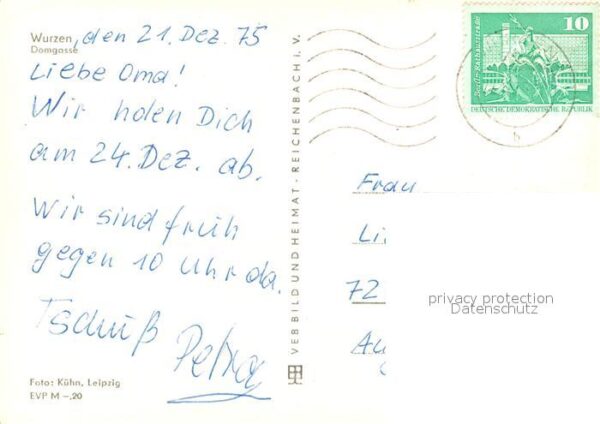 Wurzen, den 21. Dez. 75
Domgasse
Liebe Oma!
Wir holen Dich
am 24. Dez. ab.
Wir sind früh
gegen 10 Uhr da.
Tschüß Petra
Foto: Kühn, Leipzig
EVP M -,20
VEB BILD UND HEIMAT · REICHENBACH I. V.
10
Berlin-Rathausstraße
DEUTSCHE DEMOKRATISCHE REPUBLIK
h
Frau
Li
72
privacy protection
Datenschutz